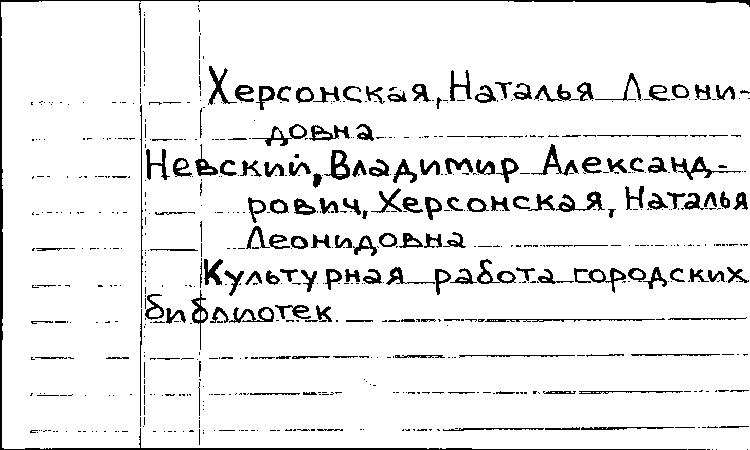 Херсонская, Наталья Леони-
довна
Невский, Владимир Александ-
рович, Херсонская, Наталья
Леонидовна
Культурная работа городских
библиотек